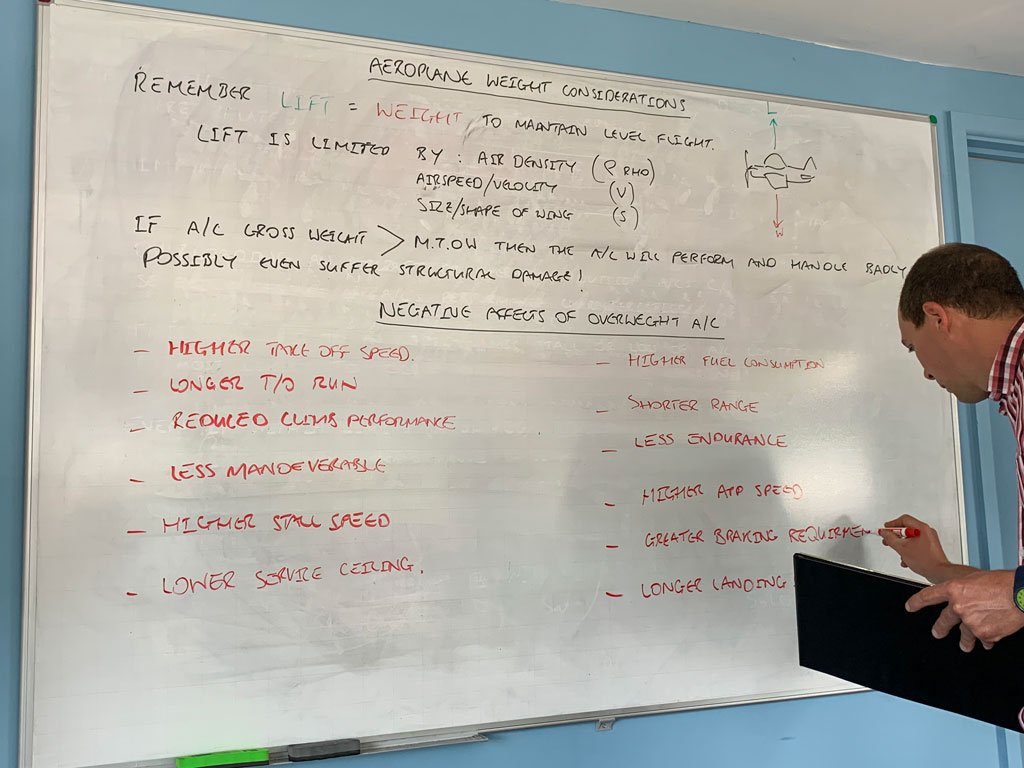 AEROPLANE WEIGHT CONSIDERATIONS
REMEMBER LIFT = WEIGHT TO MAINTAIN LEVEL FLIGHT.
LIFT IS LIMITED BY : AIR DENSITY (ρ RHO)
AIRSPEED/VELOCITY (V)
SIZE/SHAPE OF WING (S)
L
W
IF A/C GROSS WEIGHT > M.T.O.W THEN THE A/C WILL PERFORM AND HANDLE BADLY
POSSIBLY EVEN SUFFER STRUCTURAL DAMAGE!
NEGATIVE AFFECTS OF OVERWEGHT A/C
- HIGHER TAKE OFF SPEED.
- LONGER T/O RUN
- REDUCED CLIMB PERFORMANCE
- LESS MANOEVERABLE
- HIGHER STALL SPEED
- LOWER SERVICE CEILING.
- HIGHER FUEL CONSUMPTION
- SHORTER RANGE
- LESS ENDURANCE
- HIGHER APP SPEED
- GREATER BRAKING REQUIRMEN
- LONGER LANDING